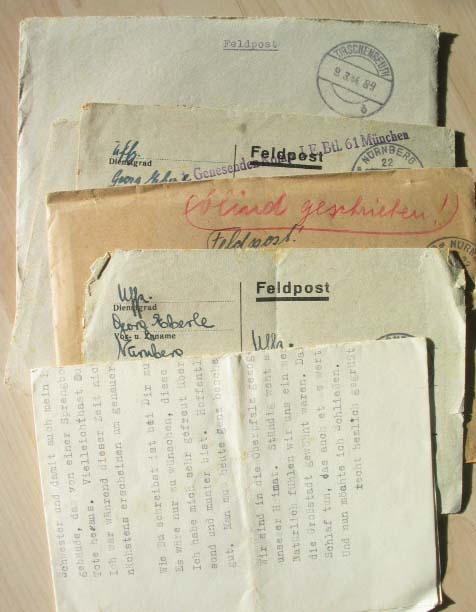 Feldpost
TIRSCHENREUTH
9.3.44. 8-9
b
Uffz.
Dienstgrad
Georg
Genesenden I.E.Btl. 61 München
Feldpost
NÜRNBERG
22
(blind geschrieben!)
Feldpost!
NÜRN
Uffz.
Dienstgrad
Georg Eberle
Vor- u. Zuname
Nürnberg
Feldpost
Uffz.
Schwester und damit auch mein
Gebäude, das von einer Sprengbo
Tote heraus. Vielleichthast Du
Ich war während dieser Zeit nic
nächstens erscheinen um genauer
Wie Du schreibst ist bei Dir zu
Es wäre nur zu wünschen, diese
Ich habe mich sehr gefreut über
sund und munter bist. Hoffentli
gut. Man mu heute ganz besche
Wir sind in die Oberpfalz gezoge
unseer H imat. Ständig wohnt a
Natürlich fühlen wir uns ein we
die Grosstadt gewöhnt waren. Da
Schlaf tun, das auch et s wert
Und nun möchte ich schliesen.
recht herzlich gegrüst